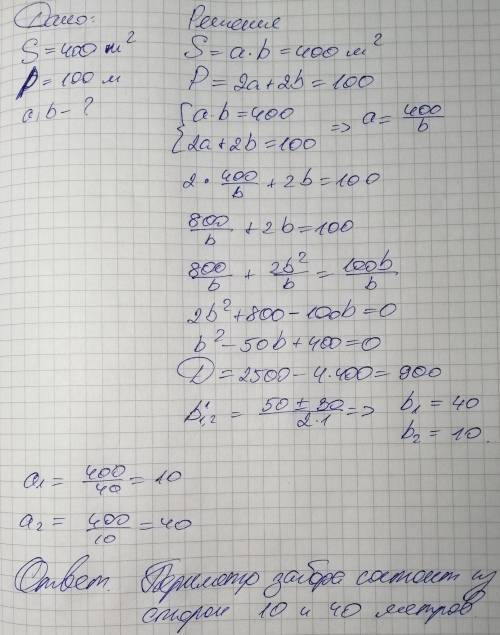 Дано: Решение
S = 400 м² S = a·b = 400 м²
P = 100 м P = 2a + 2b = 100
a, b - ? { a·b = 400 => a = 400/b
2a + 2b = 100
2 · 400/b + 2b = 100
800/b + 2b = 100
800/b + 2b²/b = 100b/b
2b² + 800 - 100b = 0
b² - 50b + 400 = 0
D = 2500 - 4·400 = 900
b₁,₂ = (50 ± 30)/(2·1) => b₁ = 40
b₂ = 10.
a₁ = 400/40 = 10
a₂ = 400/10 = 40
Ответ. Периметр забора состоит из
сторон 10 и 40 метров